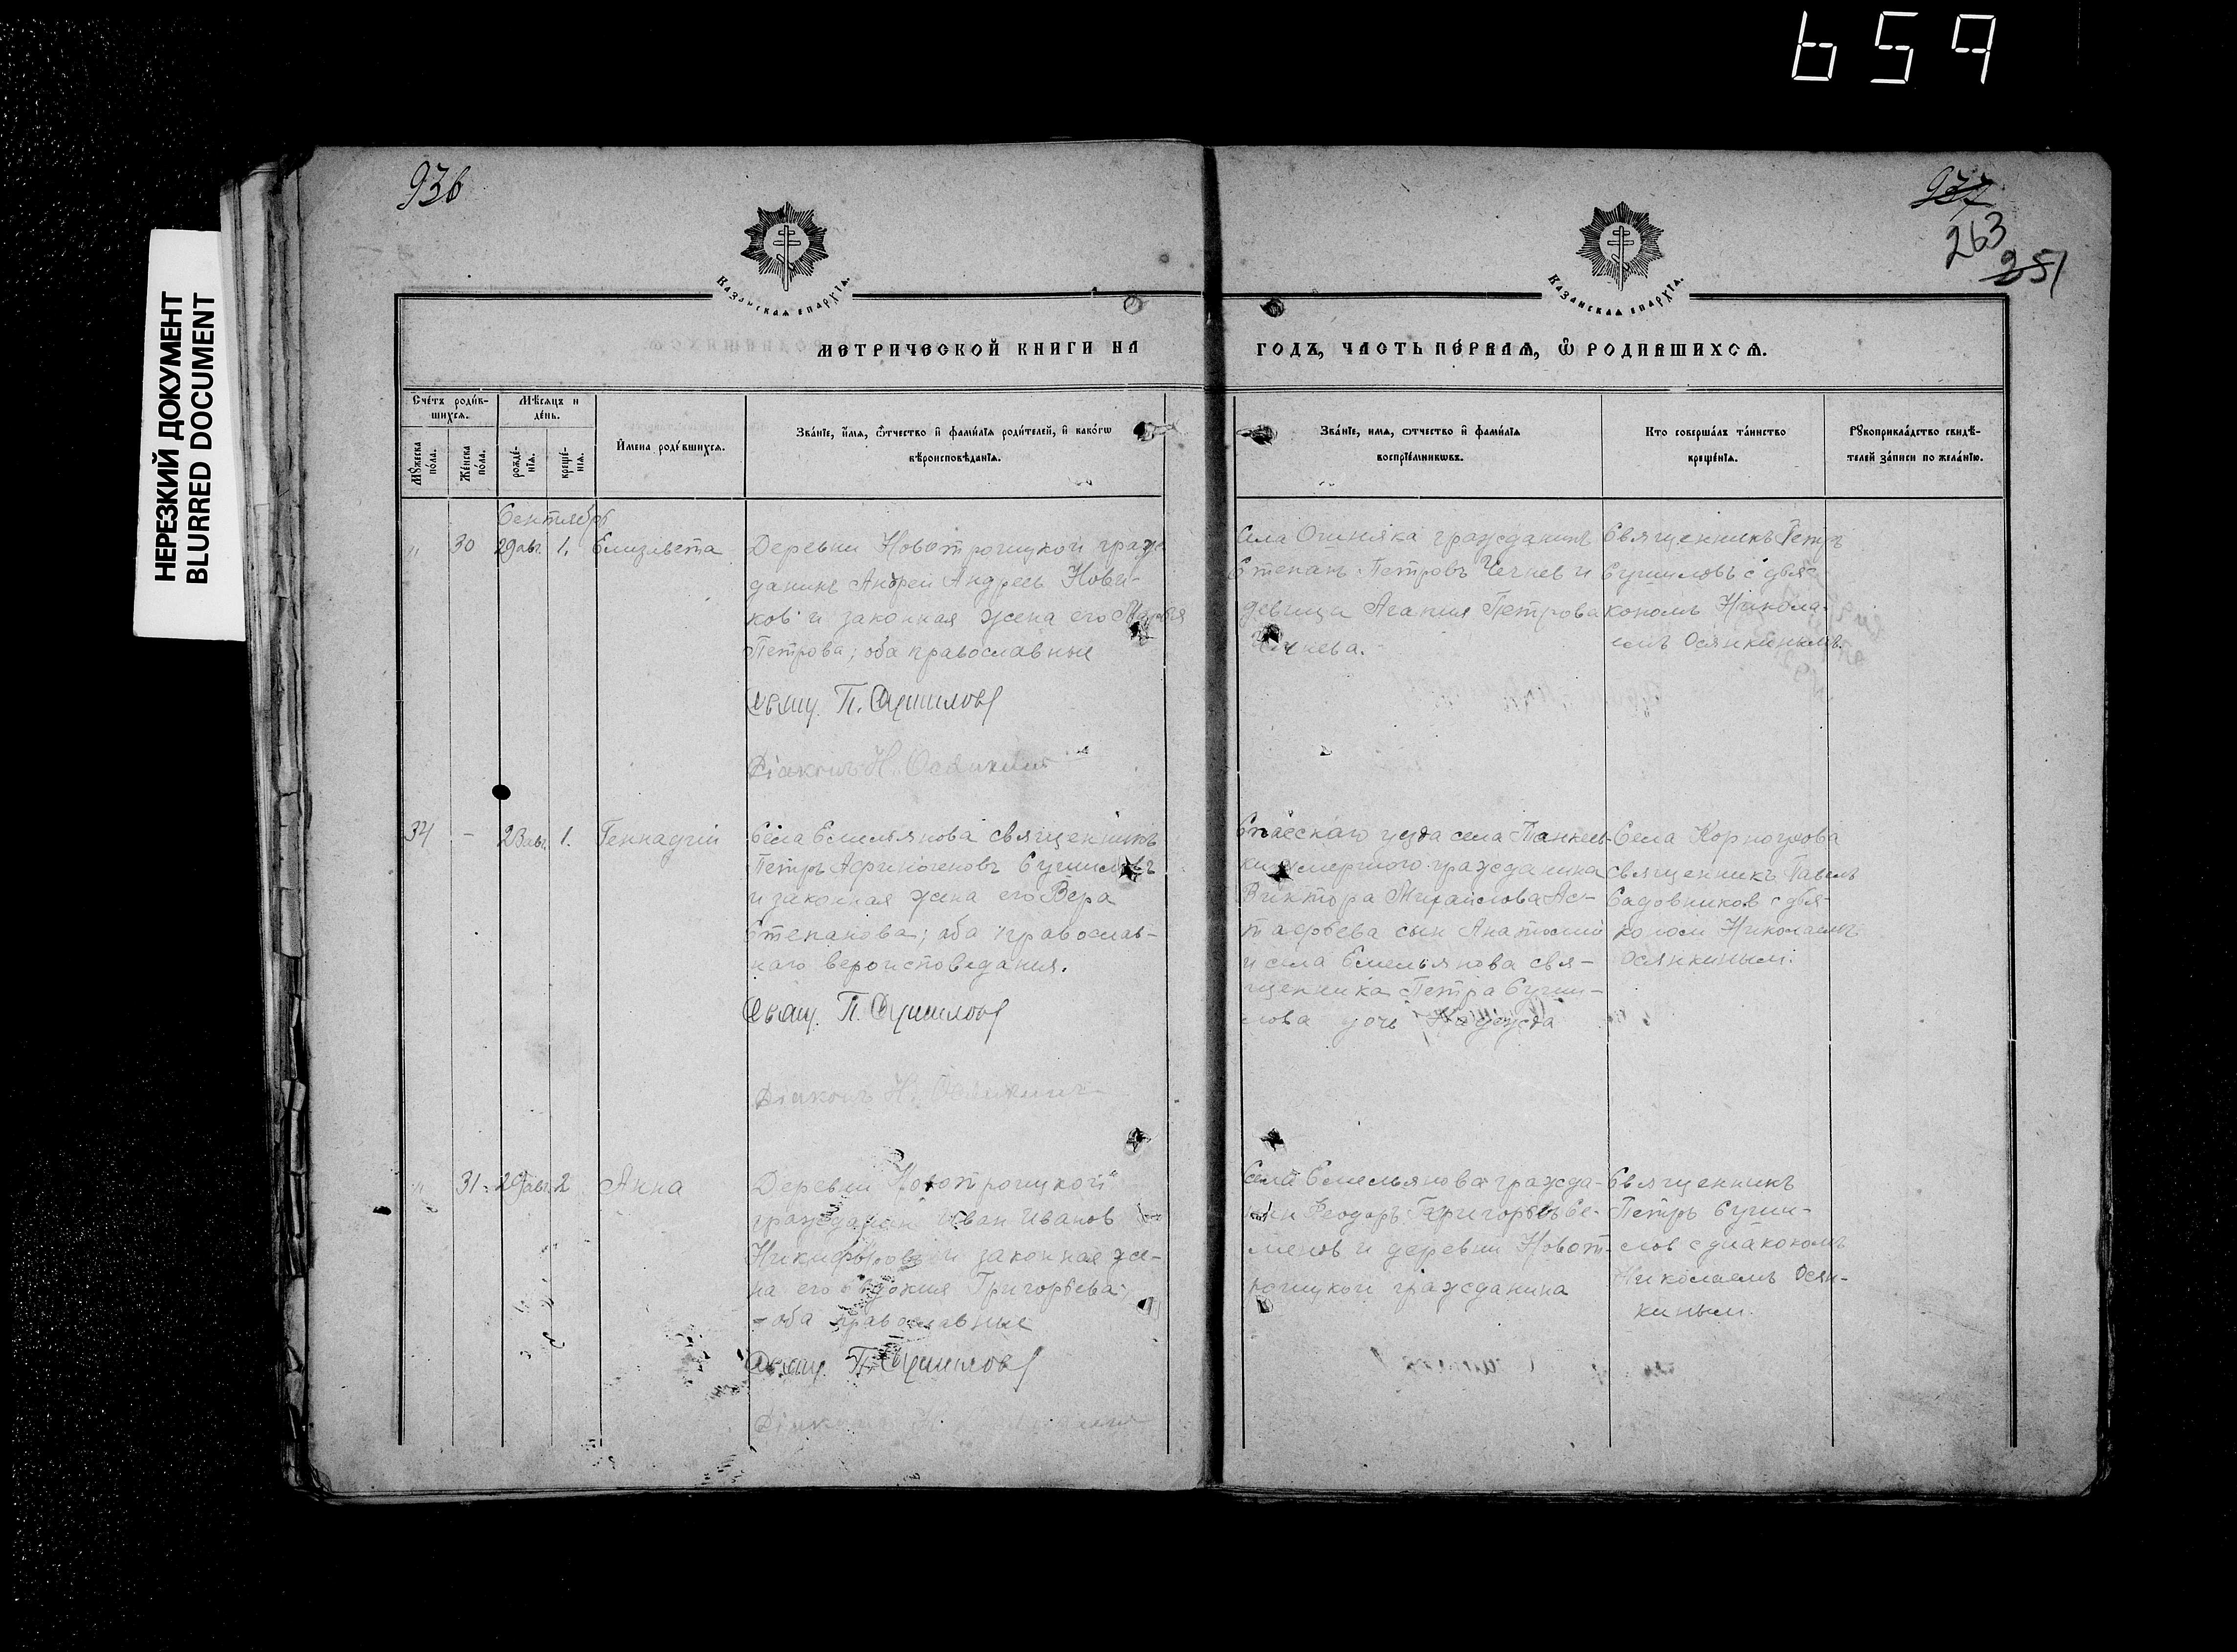 659
НЕРЕЗКИЙ ДОКУМЕНТ
BLURRED DOCUMENT
936
937
263
251
Казанская епархія.
Казанская епархія.
МЕТРИЧЕСКОЙ КНИГИ НА
ГОДЪ, ЧАСТЬ ПЕ́РВАЯ, Ѡ РОДИВШИХСѦ.
Сче́тъ роди́в-
шихся.
Мѣ́сяцъ и
де́нь.
Му́жеска
по́ла.
Же́нска
по́ла.
рожде́-
нія.
креще́-
нія.
И́мена роди́вшихся.
Зва́ніе, и́мя, ѻ́тчество и҆ фами́лія роди́телей, и҆ како́гѡ
вѣроисповѣ́данія.
Зва́ніе, имя, ѻтчество и҆ фами́лія
воспріе́мниковъ.
Кто соверша́лъ та́инство
креще́нія.
Рꙋкоприкла́дство свидѣ́-
телей за́писи по жела́нію.
Сентябрь
" 30 29 авг. 1. Елизавета
Деревни Новотроицкой граж-
данинъ Андрей Андреев Нови-
ков и законная жена его Марья
Петрова; оба православные
Свящ. П. Сушилов
Діаконъ Н. Осянкинъ
Села
гражданинъ
Степанъ Петровъ Чечнев и
девица Агапия Петрова
Чечнева.
Священникъ Петръ
Сушиловъ с дья-
кономъ Никола-
емъ Осянкинымъ.
34 - 23 авг. 1. Геннадий
Села Емельянова священникъ
Петръ Афиногеновъ Сушиловъ
и законная жена его Вера
Степанова; оба православ-
наго вероисповедания.
Свящ. П. Сушилов
Діаконъ Н. Осянкинъ
Спасскаго уезда села
умершого гражданина
Виктора Михайлова Ас-
тафьева сын Анатолий
и села Емельянова свя-
щенника Петра Суши-
лова дочь Надежда
Села Корноухова
священникъ Павелъ
Садовников с дья-
коном Николаемъ
Осянкиным.
" 31. 29 авг. 2 Анна
Деревни Новотроицкой
гражданин Иван Иванов
Никифоровъ и законная же-
на его Евдокия Григорьева;
- оба православные
Свящ. П. Сушилов
Діаконъ Н.
Села Емельянова гражда-
нин Феодоръ Григорьевъ Се-
менов и деревни Новот-
роицкой гражданина
Священникъ
Петръ Суши-
лов с диакономъ
Николаемъ Осян-
киным.